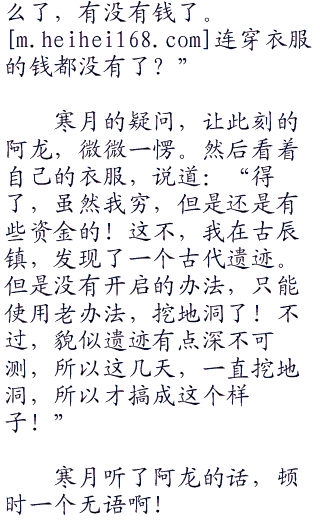 么了，有没有钱了。
[m.heihei168.com]连穿衣服
的钱都没有了？”
寒月的疑问，让此刻的
阿龙，微微一愣。然后看着
自己的衣服，说道：“得
了，虽然我穷，但是还是有
些资金的！这不，我在古辰
镇，发现了一个古代遗迹。
但是没有开启的办法，只能
使用老办法，挖地洞了！不
过，貌似遗迹有点深不可
测，所以这几天，一直挖地
洞，所以才搞成这个样
子！”
寒月听了阿龙的话，顿
时一个无语啊！